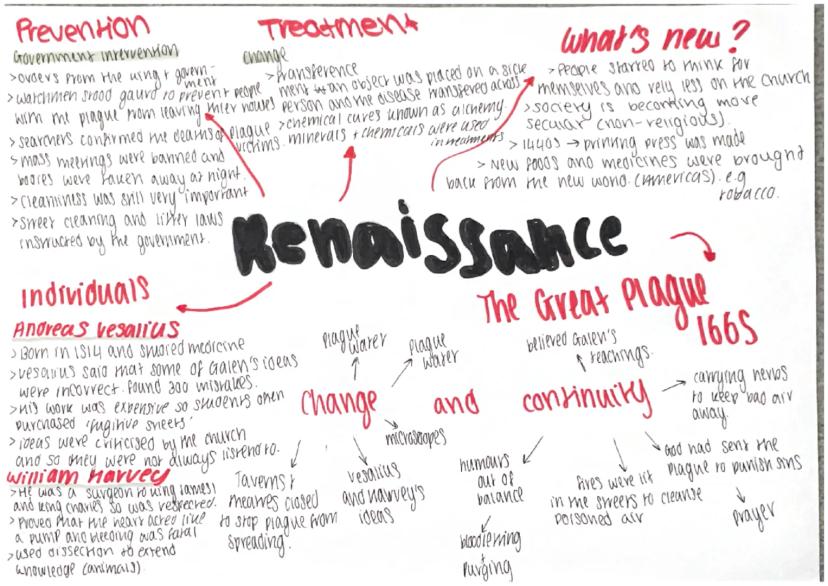 Prevention
Government intervention
> orders from the king + govern-
ment
> watchmen stood gaurd to prevent people
with the plague from leaving thier houses
> searchers confirmed the deaths of plague
victims.
> mass meetings were banned and
bodies were taken away at night.
> cleanliness was still very important
> street cleaning and litter laws
instructed by the government.
Treatment
change
> transference
an object was placed on a sick
person and the disease transfered across
> chemical cures known as alchemy.
minerals + chemicals were used
in treatments
What's new?
> People started to think for
themselves and rely less on the church
> society is becoming more
secular (non-religious).
> 1440s → printing press was made
> New foods and medicines were brought
back from the new world. (Americas). e.g
tobacco.
Renaissance
Individuals
Andreas Vesalius
> Born in 1514 and studied medicine
> Vesalius said that some of Galen's ideas
were incorrect. found 300 mistakes.
> His work was expensive so students often
purchased 'fugitive sheets'
> ideas were criticised by the church
and so they were not always listend to.
William Harvey
> He was a surgeon to king James I
and king Charles so was respected.
> Proved that the heart acted like
a pump and bleeding was fatal
> used dissection to extend
knowledge (animals).
The Great Plague
1665
Change and continuity
plague
water
plague
water
microscopes
Taverns +
theatres closed
to stop plague from
spreading.
vesalius
and harvey's
ideas
believed Galen's
teachings.
carrying herbs
to keep bad air
away.
God had sent the
plague to punish sins
prayer
fires were lit
in the streets to cleanse
poisoned air
humours
out of
balance
bloodletting
+
purging